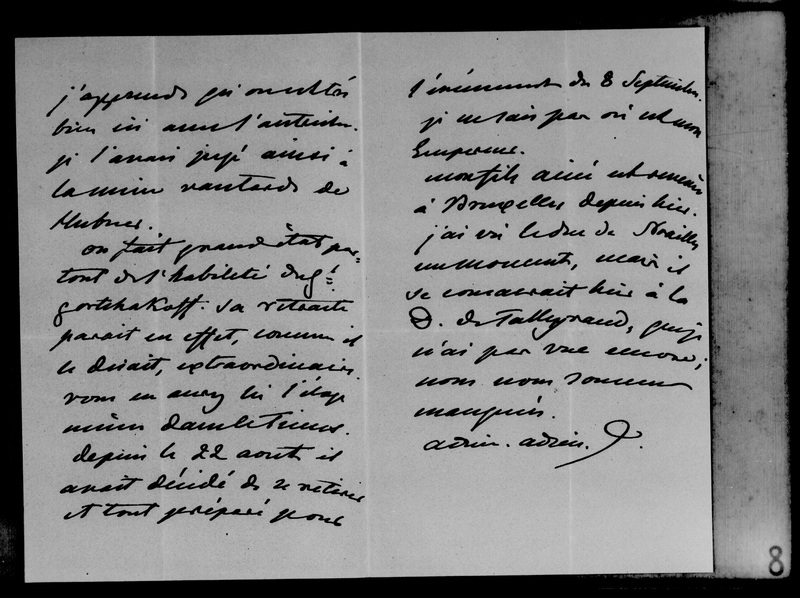 j'apprends qu'on est très
bien ici avec l'autriche.
je l'avais jugé ainsi à
la mine vantarde de
Hubner.
on fait grand état par=
tout de l'habileté du gal
gortchakoff. sa retraite
parait en effet, comme il
le disait, extraordinaire.
vous en aurez lu l'éloge
même dans le Times.
depuis le 22 aout il
avait décidé de se retirer
et tout préparé pour
l'événement du 8 Septembre.
je ne sais pas où est mon
Empereur.
mon fils ainé est
à Bruxelles depuis hier.
j'ai vu le duc de Noailles
un moment, mais il
se consacrait hier à la
D. de Talleyrand, que je
n'ai pas vue encore;
nous nous sommes
manquées.
adieu. adieu.
8